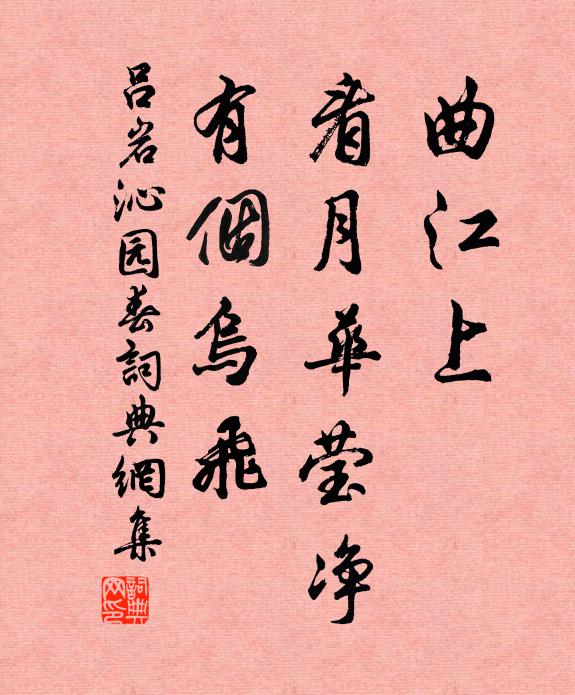 曲江上
看月華莹净
有個烏飛
吕岩沁园春詞典網集
詞典
网印